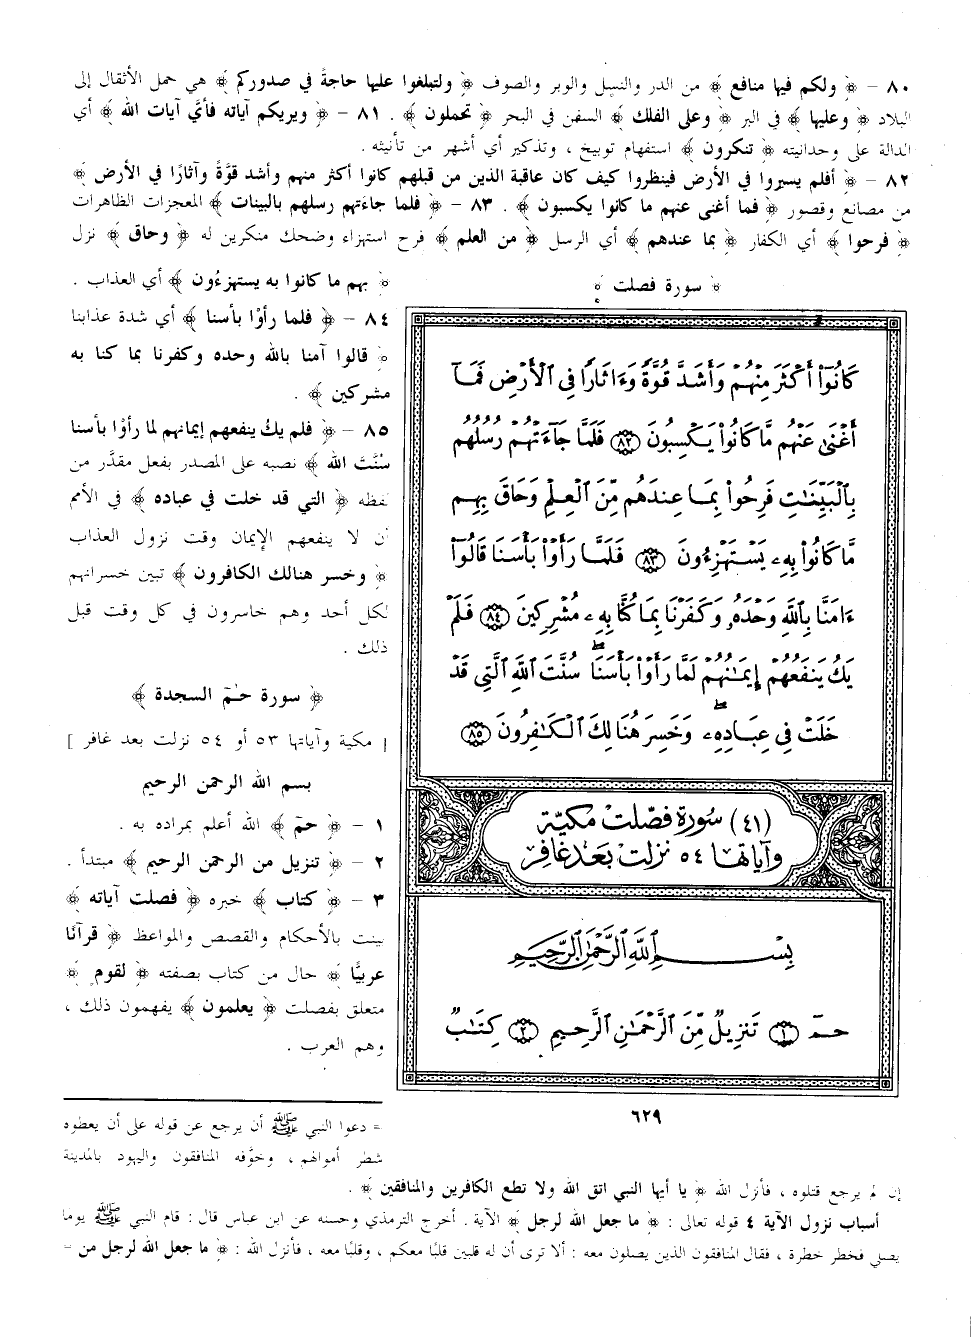 ٨٠ - ﴿ ولكم فيها منافع ﴾ من الدر والنسل والوبر والصوف ﴿ ولتبلغوا عليها حاجةً في صدوركم ﴾ هي حمل الأثقال إلى
البلاد ﴿ وعليها ﴾ في البر ﴿ وعلى الفلك ﴾ السفن في البحر ﴿ تحملون ﴾ . ٨١ - ﴿ ويريكم آياته فأيَّ آيات الله ﴾ أي
الدالة على وحدانيته ﴿ تنكرون ﴾ استفهام توبيخ ، وتذكير أي أشهر من تأنيثه .
٨٢ - ﴿ أفلم يسيروا في الأرض فينظروا كيف كان عاقبة الذين من قبلهم كانوا أكثر منهم وأشد قوَّةً وآثارًا في الأرض ﴾
من مصانع وقصور ﴿ فما أغنى عنهم ما كانوا يكسبون ﴾ . ٨٣ - ﴿ فلما جاءتهم رسلهم بالبينات ﴾ المعجزات الظاهرات
﴿ فرحوا ﴾ أي الكفار ﴿ بما عندهم ﴾ أي الرسل ﴿ من العلم ﴾ فرح استهزاء وضحك منكرين له ﴿ وحاق ﴾ نزل
﴿ بهم ما كانوا به يستهزءُون ﴾ أي العذاب .
٨٤ - ﴿ فلما رأوْا بأسنا ﴾ أي شدة عذابنا
﴿ قالوا آمنا بالله وحده وكفرنا بما كنا به
مشركين ﴾ .
٨٥ - ﴿ فلم يكُ ينفعهم إيمانهم لما رأوْا بأسنا
سُنَّتَ الله ﴾ نصبه على المصدر بفعل مقدَّر من
لفظه ﴿ التي قد خلت في عباده ﴾ في الأمم
أن لا ينفعهم الإيمان وقت نزول العذاب
﴿ وخسر هنالك الكافرون ﴾ تبين خسرانهم
لكل أحد وهم خاسرون في كل وقت قبل
ذلك .
﴿ سورة حـٰمٓ السجدة ﴾
[ مكية وآياتها ٥٣ أو ٥٤ نزلت بعد غافر ]
بسم الله الرحمن الرحيم
١ - ﴿ حمٓ ﴾ الله أعلم بمراده به .
٢ - ﴿ تنزيل من الرحمن الرحيم ﴾ مبتدأ .
٣ - ﴿ كتاب ﴾ خبره ﴿ فصلت آياته ﴾
بينت بالأحكام والقصص والمواعظ ﴿ قرآنًا
عربيًّا ﴾ حال من كتاب بصفته ﴿ لقوم ﴾
متعلق بفصلت ﴿ يعلمون ﴾ يفهمون ذلك ،
وهم العرب .
﴿ سورة فصلت ﴾
كَانُوٓا۟ أَكْثَرَ مِنْهُمْ وَأَشَدَّ قُوَّةً وَءَاثَارًا فِي ٱلْأَرْضِ فَمَآ
أَغْنَىٰ عَنْهُم مَّا كَانُوا۟ يَكْسِبُونَ ٨٢ فَلَمَّا جَآءَتْهُمْ رُسُلُهُم
بِٱلْبَيِّنَـٰتِ فَرِحُوا۟ بِمَا عِندَهُم مِّنَ ٱلْعِلْمِ وَحَاقَ بِهِم
مَّا كَانُوا۟ بِهِۦ يَسْتَهْزِءُونَ ٨٣ فَلَمَّا رَأَوْا۟ بَأْسَنَا قَالُوٓا۟
ءَامَنَّا بِٱللَّهِ وَحْدَهُۥ وَكَفَرْنَا بِمَا كُنَّا بِهِۦ مُشْرِكِينَ ٨٤ فَلَمْ
يَكُ يَنفَعُهُمْ إِيمَـٰنُهُمْ لَمَّا رَأَوْا۟ بَأْسَنَا ۖ سُنَّتَ ٱللَّهِ ٱلَّتِي قَدْ
خَلَتْ فِي عِبَادِهِۦ ۖ وَخَسِرَ هُنَالِكَ ٱلْكَـٰفِرُونَ ٨٥
(٤١) سورة فصّلت مكيّة
وآياتها ٥٤ نزلت بعد غافر
بِسْمِ ٱللَّهِ ٱلرَّحْمَـٰنِ ٱلرَّحِيمِ
حمٓ ١ تَنزِيلٌ مِّنَ ٱلرَّحْمَـٰنِ ٱلرَّحِيمِ ٢ كِتَـٰبٌ
٦٢٩
= دعوا النبي ﷺ أن يرجع عن قوله على أن يعطوه
شطر أموالهم ، وخوَّفه المنافقون واليهود بالمدينة
إن لم يرجع قتلوه ، فأنزل الله ﴿ يا أيها النبي اتق الله ولا تطع الكافرين والمنافقين ﴾ .
أسباب نزول الآية ٤ قوله تعالى : ﴿ ما جعل الله لرجل ﴾ الآية . أخرج الترمذي وحسنه عن ابن عباس قال : قام النبي ﷺ يوما
يصلي فخطر خطرة ، فقال المنافقون الذين يصلون معه : ألا ترى أن له قلبين قلبًا معكم ، وقلبًا معه ، فأنزل الله : ﴿ ما جعل الله لرجل من =